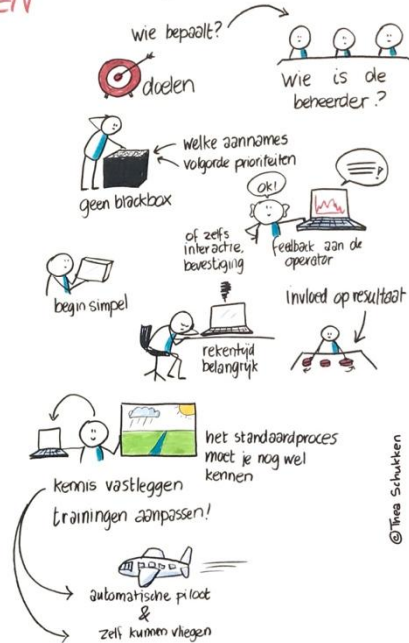 EN
wie bepaalt?
doelen
wie is de
beheerder?
welke aannames
volgorde prioriteiten
geen blackbox
ok!
feedback aan de
operator
of zelfs
interactie,
bevestiging
begin simpel
rekentijd
belangrijk
invloed op resultaat
het standaardproces
moet je nog wel
kennen
kennis vastleggen
trainingen aanpassen!
automatische piloot
&
zelf kunnen vliegen
@Thea Schukken